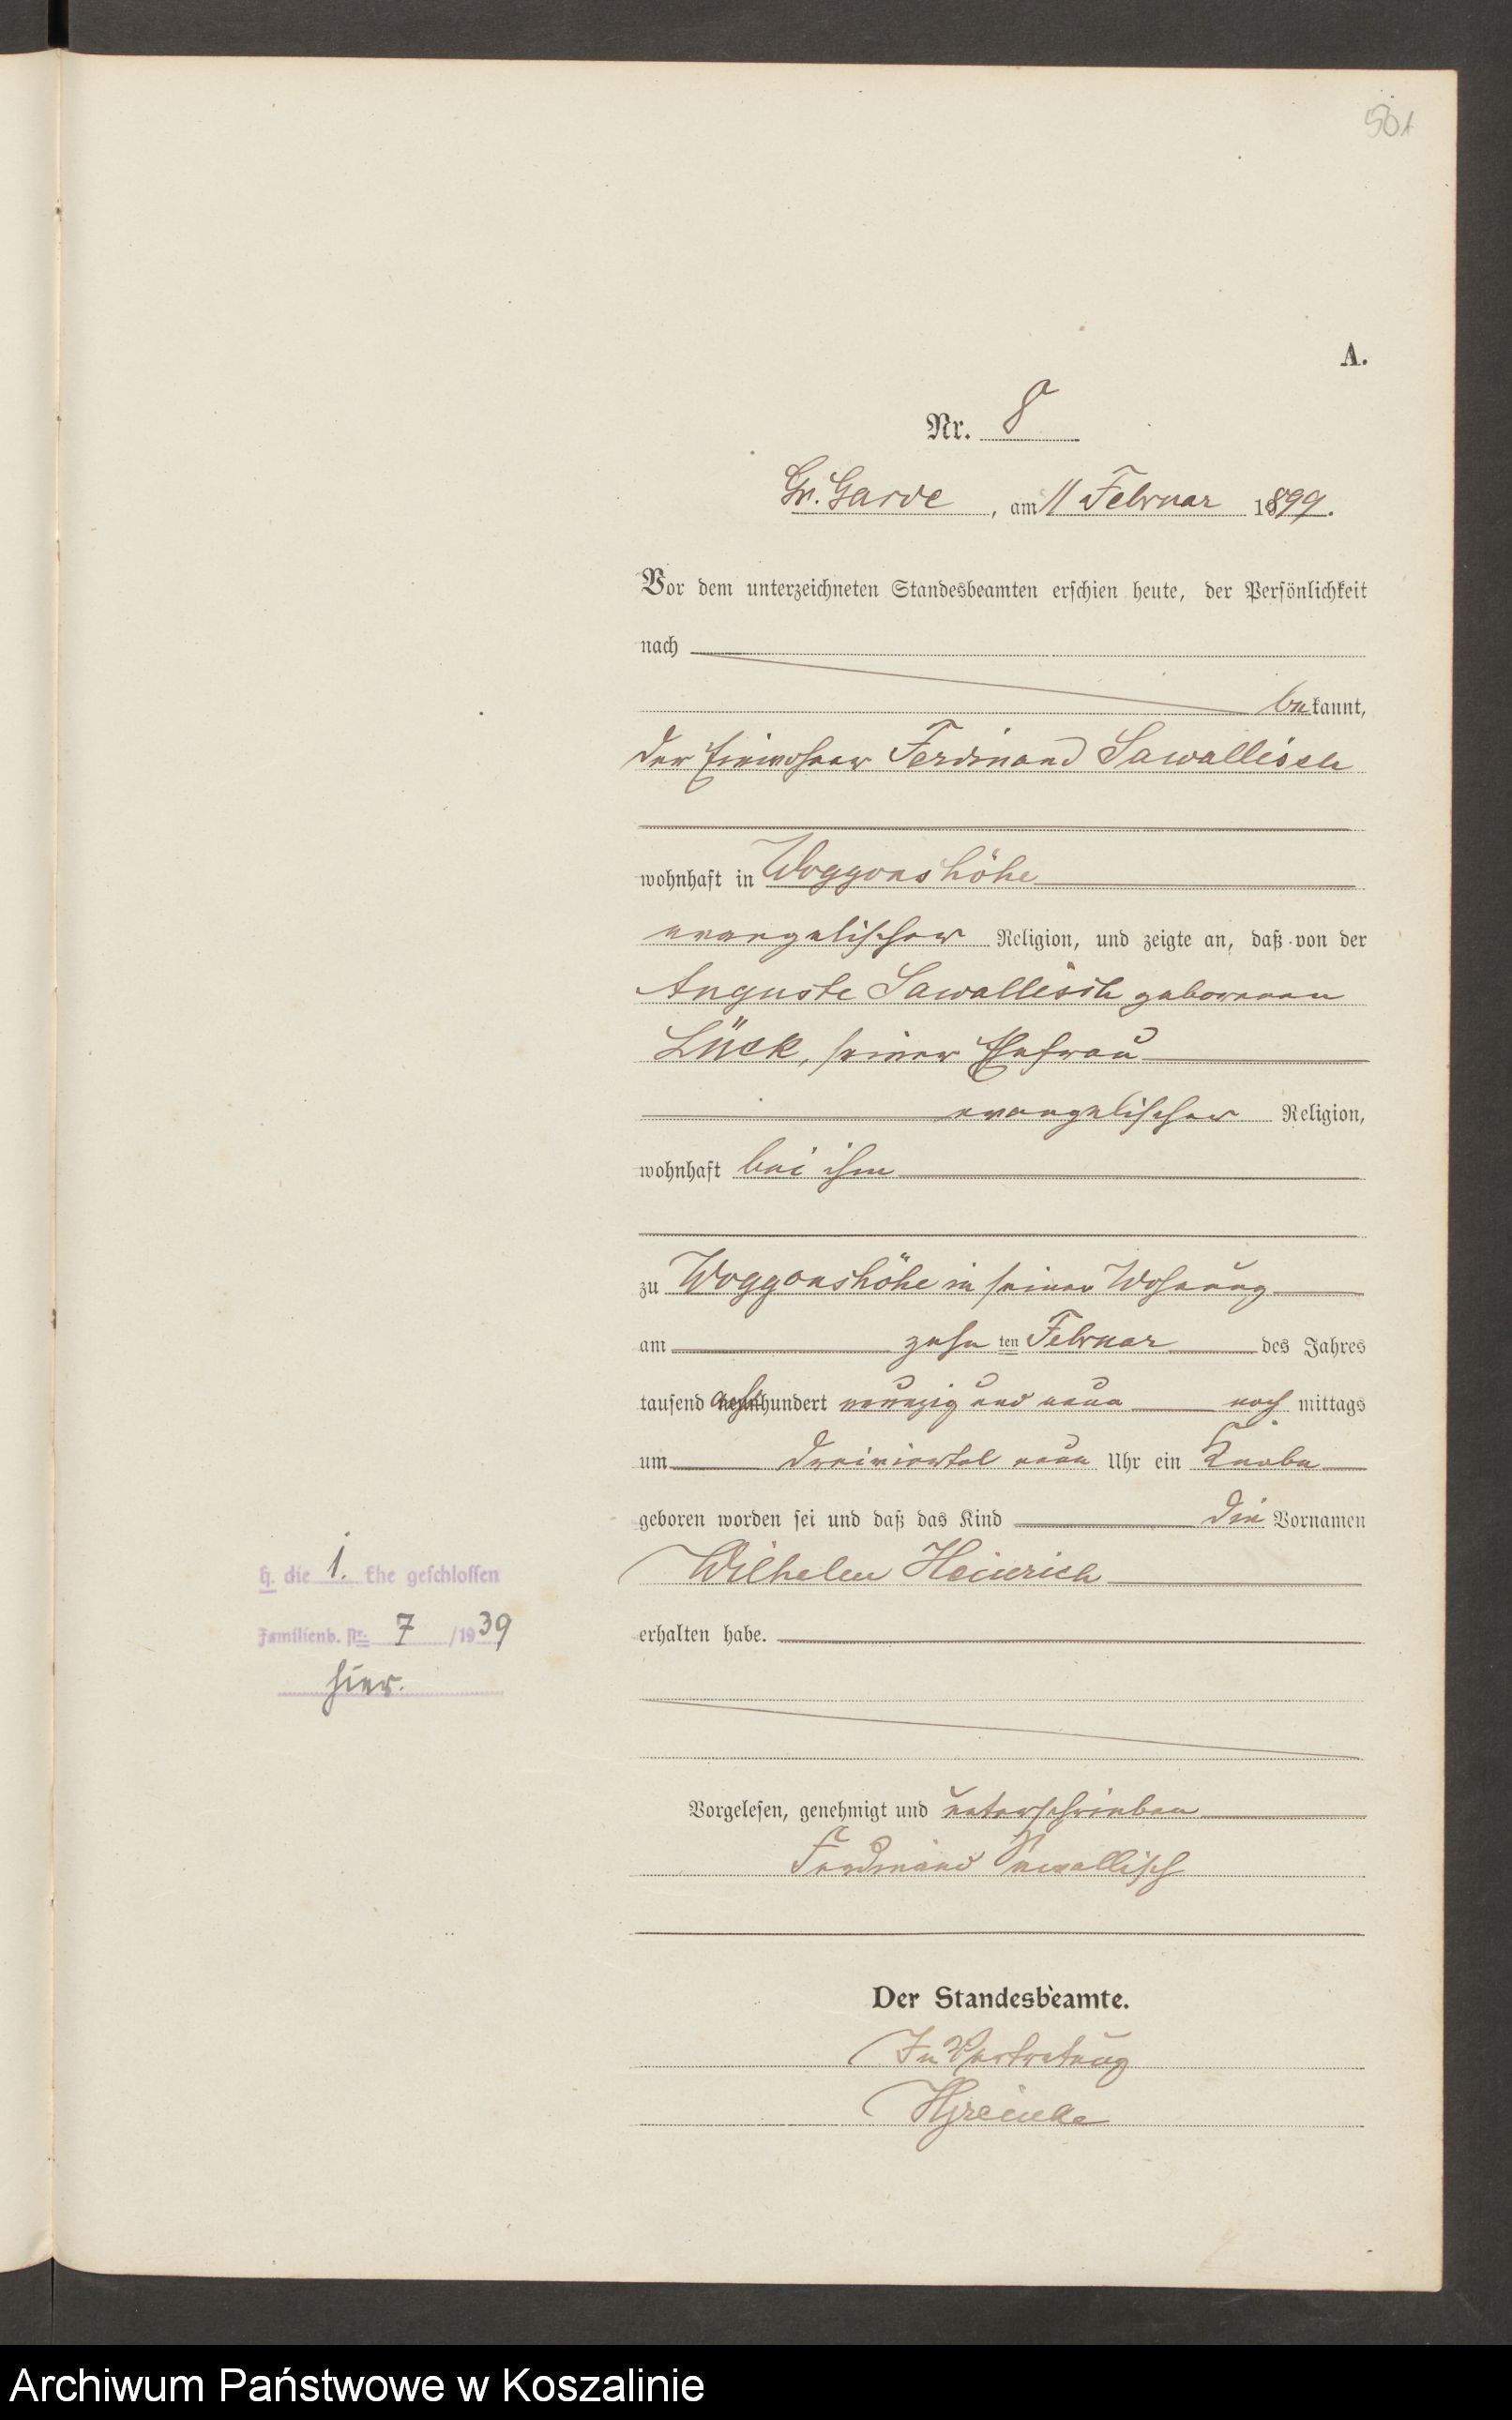 A.
Nr. 8
Gr. Garde, am 11 Februar 1899.
Vor dem unterzeichneten Standesbeamten erschien heute, der Persönlichkeit
nach
bekannt,
der Einwohner Ferdinand Sawallisch
wohnhaft in Woggonshöhe
evangelischer Religion, und zeigte an, daß von der
Auguste Sawallisch geborenen
Lück, seiner Ehefrau
evangelischer Religion,
wohnhaft bei ihm
zu Woggonshöhe in seiner Wohnung
am zehn ten Februar des Jahres
tausend acht hundert neunzig und neun nach mittags
um dreiviertel neun Uhr ein Knabe
geboren worden sei und daß das Kind die Vornamen
Wilhelm Heinrich
erhalten habe.
h. die 1. Ehe geschlossen
Familienb. Nr. 7 /1939
hier.
Vorgelesen, genehmigt und unterschrieben
Ferdinand Sawallisch
Der Standesbeamte.
In Vertretung
Archiwum Państwowe w Koszalinie